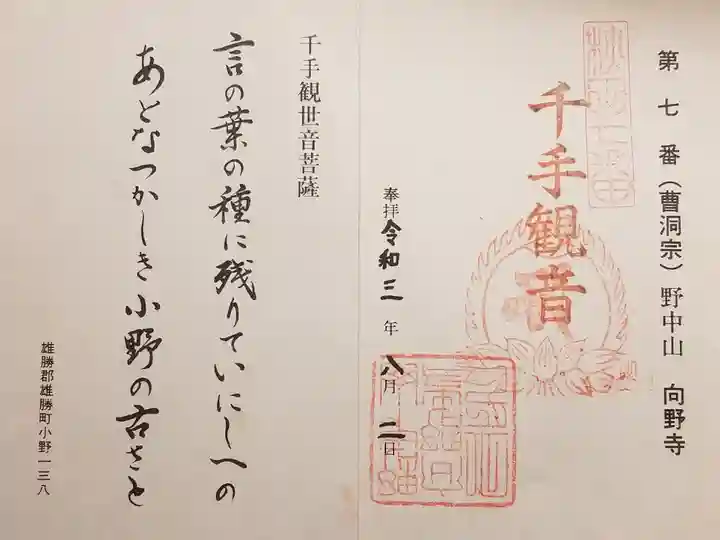 第七番（曹洞宗）野中山 向野寺
千手観音
奉拝 令和三年八月二日
千手観世音菩薩
言の葉の種に残りていにしへの
あとなつかしき小野の古さと
雄勝郡雄勝町小野一三八